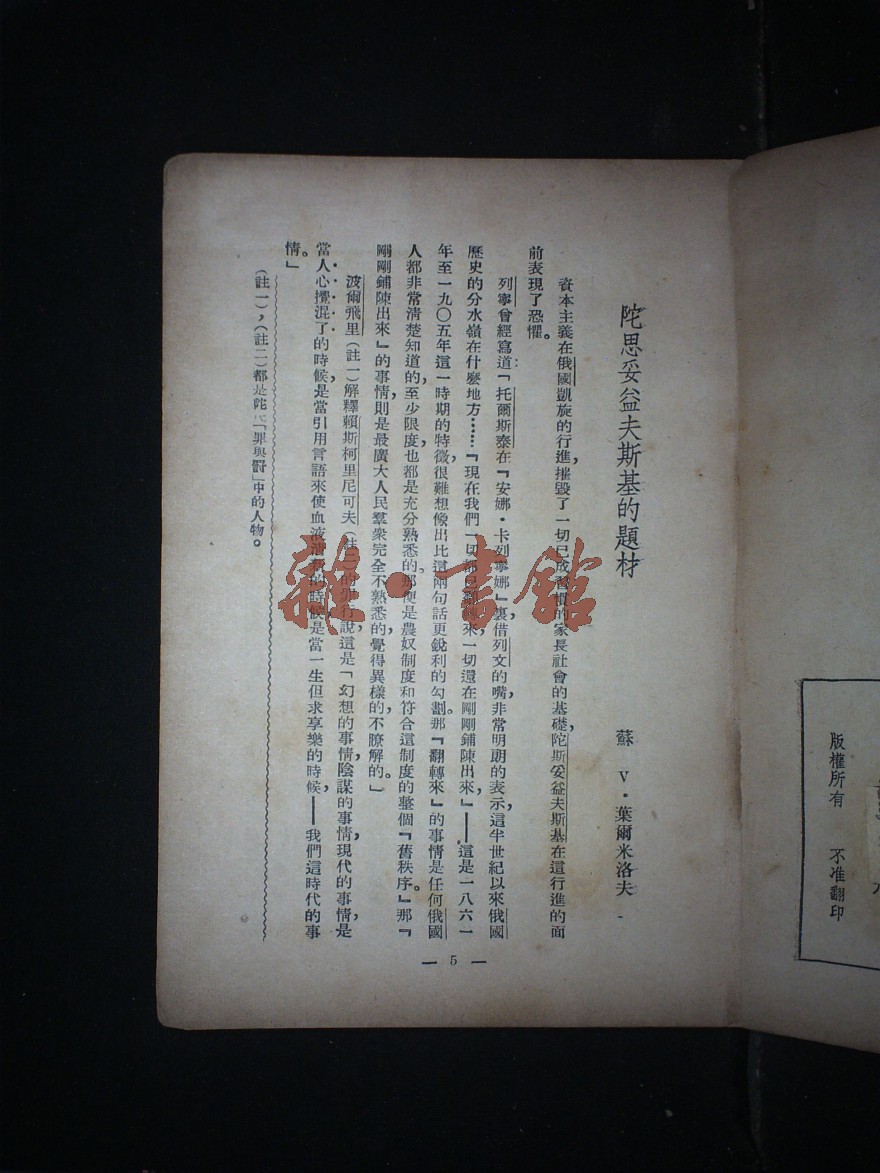 版權所有 不准翻印
陀思妥益夫斯基的題材
蘇 V·葉爾米洛夫
資本主義在俄國凱旋的行進,摧毀了一切已成習慣的家長社會的基礎,陀斯妥益夫斯基在這行進的面
前表現了恐懼。
列寧曾經寫道:「托爾斯泰在『安娜·卡列寧娜』裏借列文的嘴,非常明朗的表示,這半世紀以來俄國
歷史的分水嶺在什麼地方……『現在我們一切都已翻轉來,一切還在剛剛鋪陳出來』——這是一八六一
年至一九〇五年這一時期的特徵,很難想像出比這兩句話更銳利的勾劃。那『翻轉來』的事情是任何俄國
人都非常清楚知道的,至少限度也都是充分熟悉的,那便是農奴制度和符合這制度的整個『舊秩序。』那『
剛剛鋪陳出來』的事情,則是最廣大人民羣衆完全不熟悉的,覺得異樣的,不瞭解的。」
波爾飛里(註一)解釋賴斯柯里尼可夫(註二)的罪行說,這是「幻想的事情,陰謀的事情,現代的事情,是
當人心攪混了的時候,是當引用言語來使血液 的時候,是當一生但求享樂的時候,——我們這時代的事
情。」
(註一),(註二)都是陀氏「罪與罰」中的人物。
— 5 —
雜·書館